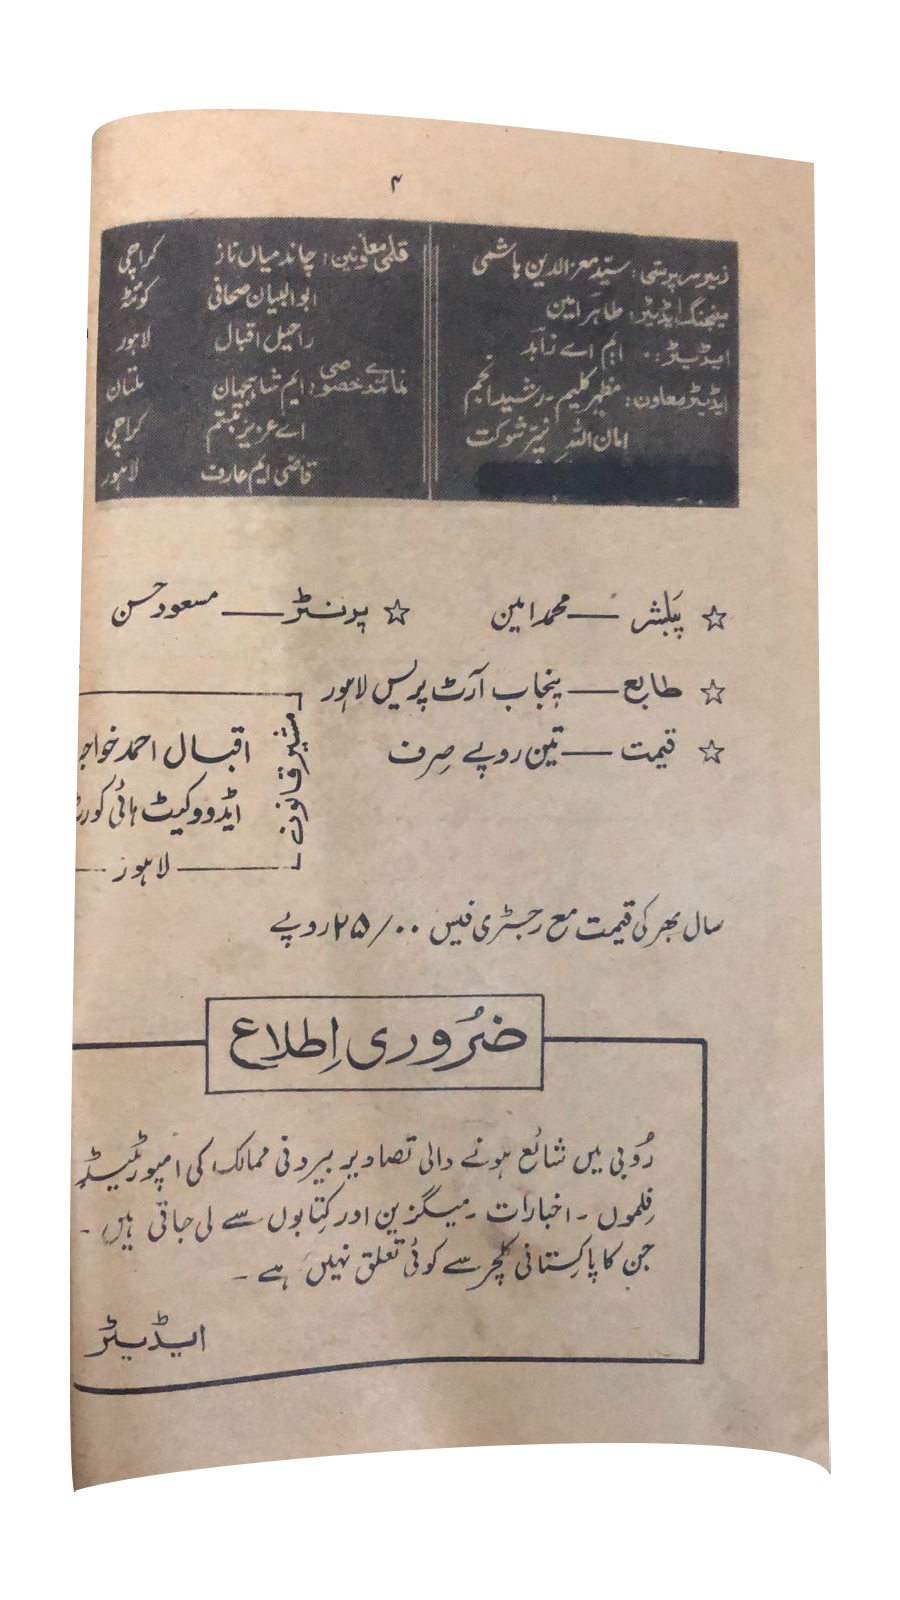 ۴
زیر سرپرستی: سیّد معز الدین ہاشمی
مینجنگ ایڈیٹر: طاہر امین
ایڈیٹر: ایم اے زاہد
ایڈیٹر معاون: مظہر کلیم ۔ رشید انجم
امان اللہ نیّر شوکت
قلمی معاونین: چاند میاں ناز کراچی
ابو البیان صحافی کوئٹہ
راحیل اقبال لاہور
نمائندے خصوصی: ایم شاہجہان ملتان
اے عزیز تبسّم کراچی
قاضی ایم عارف لاہور
☆ پبلشر — محمد امین ☆ پرنٹر — مسعود حسن
☆ طابع — پنجاب آرٹ پریس لاہور
☆ قیمت — تین روپے صِرف
مشیر قانون
اقبال احمد خواجہ
ایڈووکیٹ ہائی کورٹ
لاہور
سال بھر کی قیمت مع رجسٹری فیس ۲۵/۰۰ روپے
ضرُوری اِطلاع
رُوبی میں شائع ہونے والی تصاویر بیرونی ممالک کی امپورٹیڈ
فِلموں ۔ اخبارات ۔ میگزین اور کِتابوں سے لی جاتی ہیں ۔
جن کا پاکِستانی کلچر سے کوئی تعلق نہیں ہے ۔
ایڈیٹر